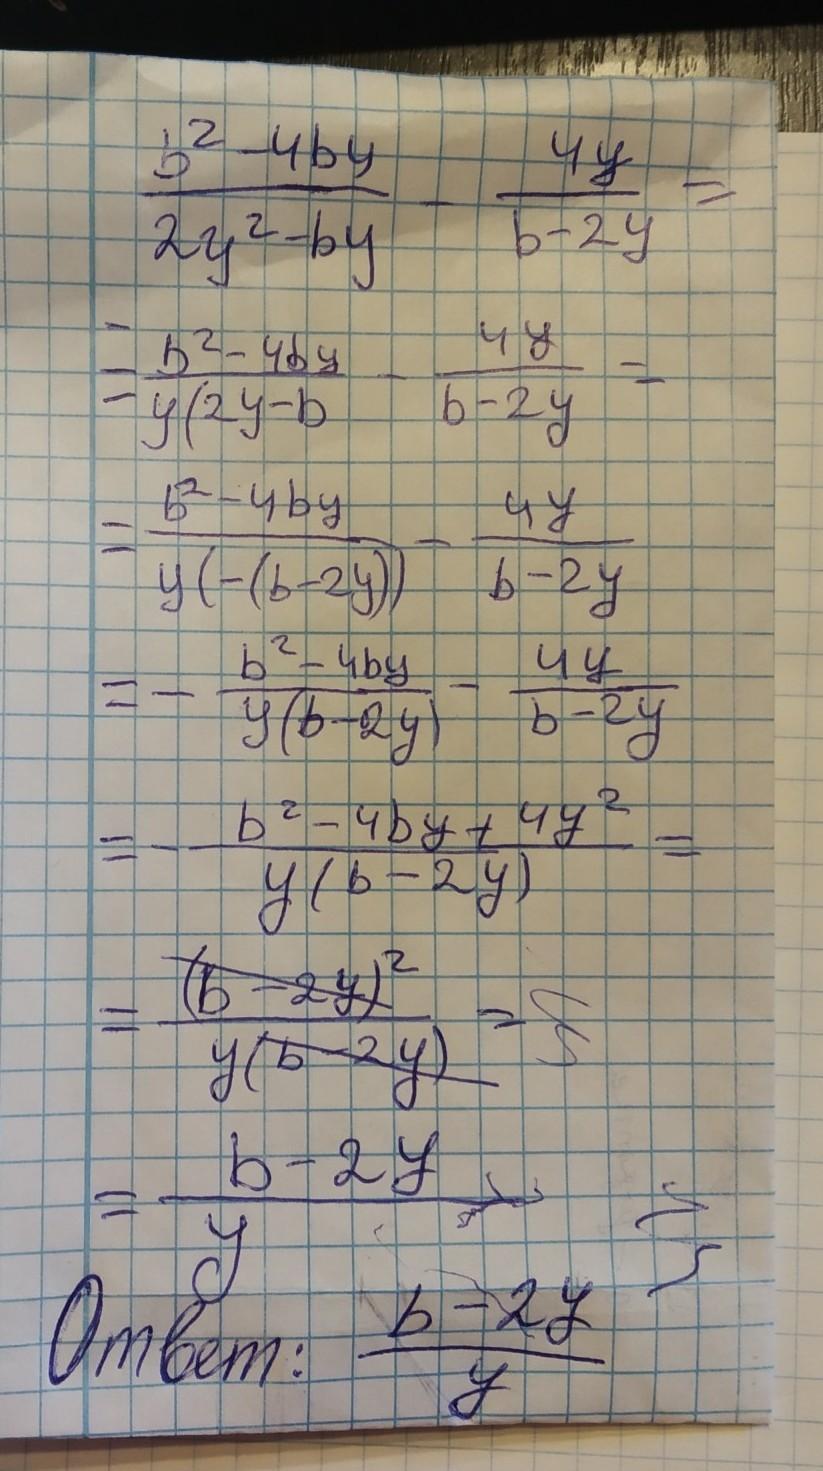 b² - 4by / 2y² - by - 4y / b - 2y =
= b² - 4by / y(2y - b - 4y / b - 2y =
= b² - 4by / y(-(b - 2y)) - 4y / b - 2y
= - b² - 4by / y(b - 2y) - 4y / b - 2y
= - b² - 4by + 4y² / y(b - 2y) =
= (b - 2y)² / y(b - 2y) =
= b - 2y / y
Ответ: b - 2y / y